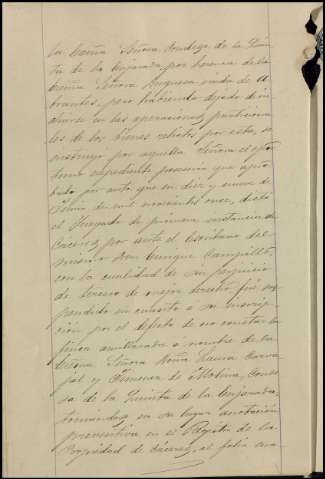 la Excma Señora Condesa de la Quin
ta de la Enjarada, por herencia de la
Excma Señora Duquesa viuda de A
brantes, pero habiendo dejado de in
cluirse en las operaciones particiona
les de los bienes relictos por esta, se
instruyó por aquella Señora el opor
tuno expediente posesorio que apro
bado por auto que en diez y nueve de
Junio de mil novecientos once, dictó
el Juzgado de primera instancia de
Cáceres, por ante el Escribano del
mismo Don Enrique Campillo,
con la cualidad de sin perjuicio
de tercero de mejor derecho, fué sus
pendido en cuanto á su inscrip
ción por el defecto de no constar la
finca amillarada á nombre de la
Excma Señora Doña Laura Carva
jal y Jimenez de Molina, Conde
sa de la Quinta de la Enjarada,
tomándose en su lugar anotación
preventiva en el Registro de la
Propiedad de Cáceres, al folio